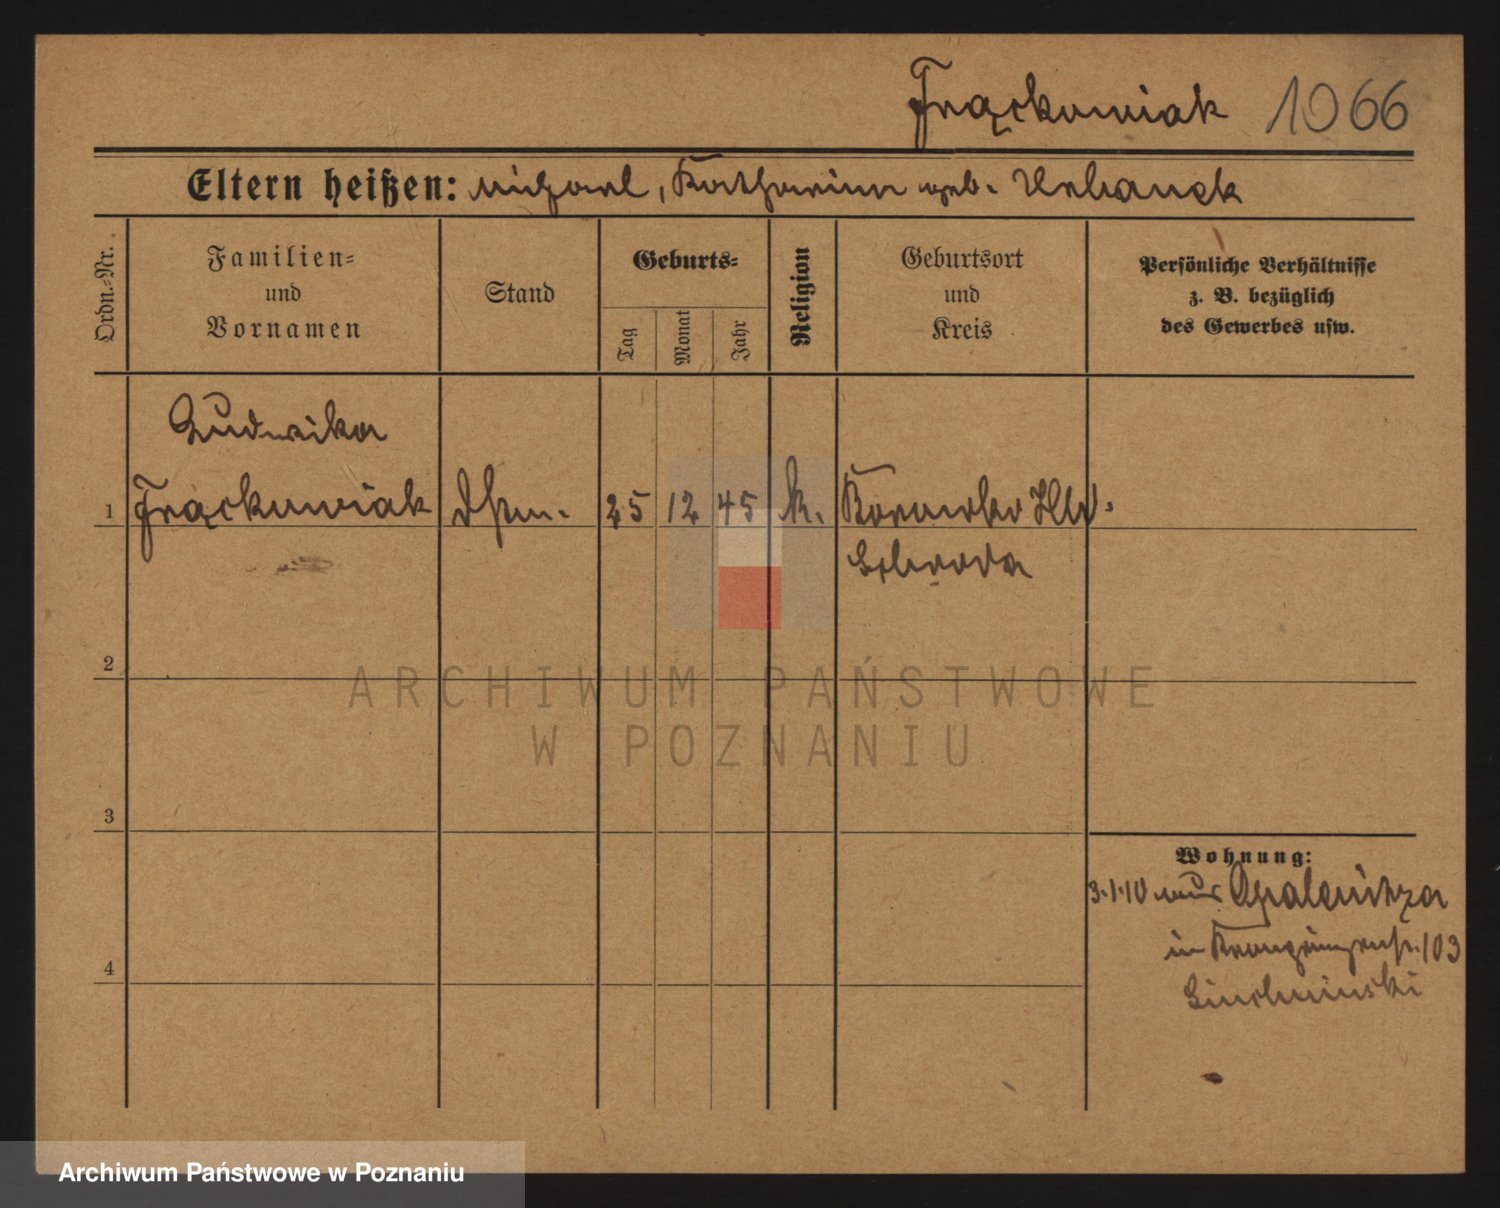 Frąckowiak 1066
Eltern heißen: Michael, Katharina geb. Urbanek
Ordn.-Nr.
Familien-
und
Vornamen
Stand
Geburts-
Tag
Monat
Jahr
Religion
Geburtsort
und
Kreis
Persönliche Verhältnisse
z. B. bezüglich
des Gewerbes usw.
Ludwika
1 Frąckowiak 25 12 45 k.
Schroda
2
ARCHIWUM PAŃSTWOWE
W POZNANIU
3
Wohnung:
3.1.10 aus Opalenitza
in 103
4
Archiwum Państwowe w Poznaniu